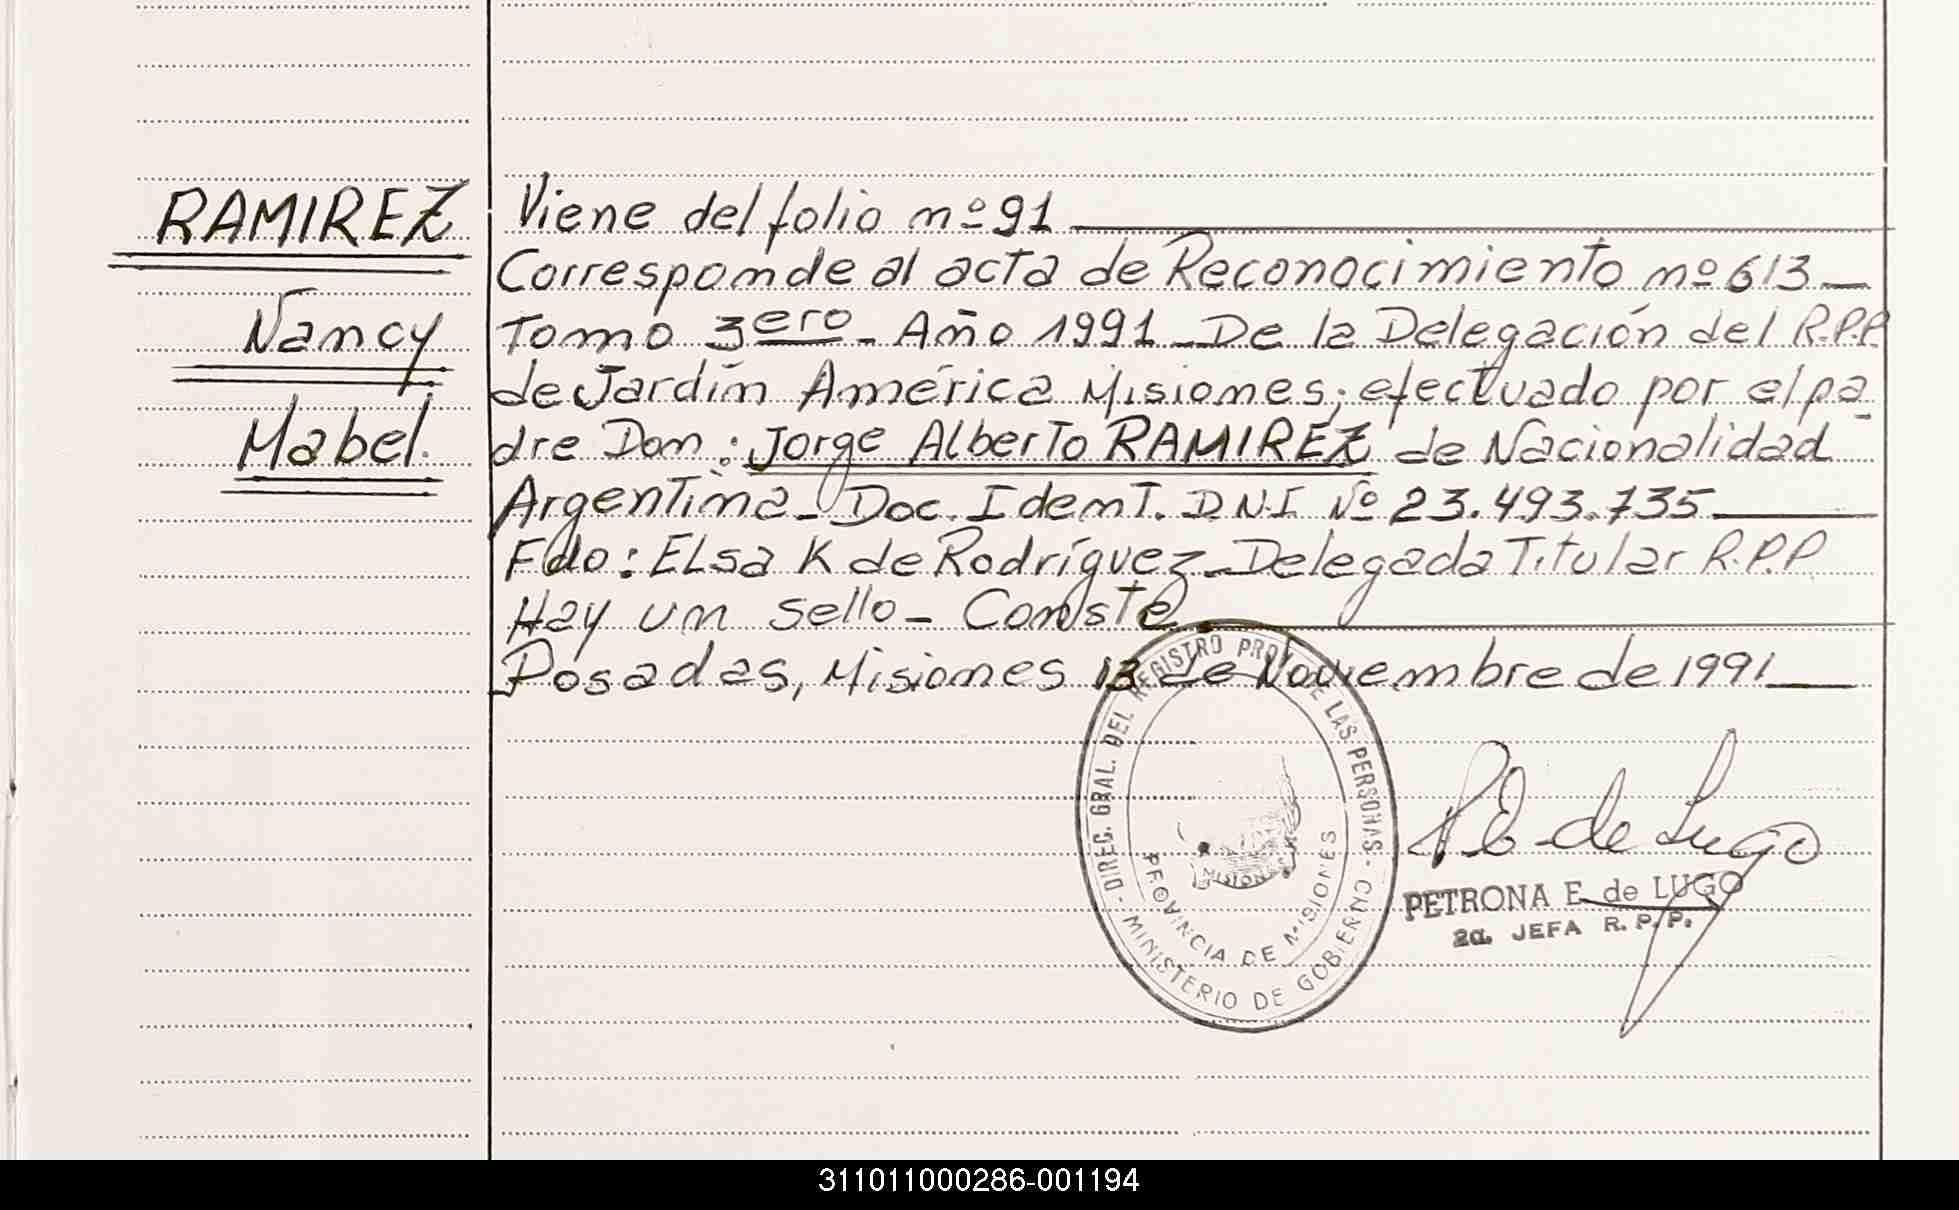 RAMIREZ
Nancy
Mabel.
Viene del folio nº 91
Corresponde al acta de Reconocimiento nº 613
Tomo 3ero - Año 1991 - De la Delegación del R.P.P.
de Jardín América Misiones; efectuado por el pa
dre Don: Jorge Alberto RAMIREZ de Nacionalidad
Argentina - Doc. Ident. D.N.I Nº 23.493.735
Fdo: Elsa K de Rodríguez - Delegada Titular R.P.P.
Hay un sello - Conste
Posadas, Misiones 13 de Noviembre de 1991
DIREC. GRAL. DEL REGISTRO PROV. DE LAS PERSONAS -
MINISTERIO DE GOBIERNO
PROVINCIA DE MISIONES
MISIONES
P E de Lugo
PETRONA E. de LUGO
2a. JEFA R. P. P.
311011000286-001194